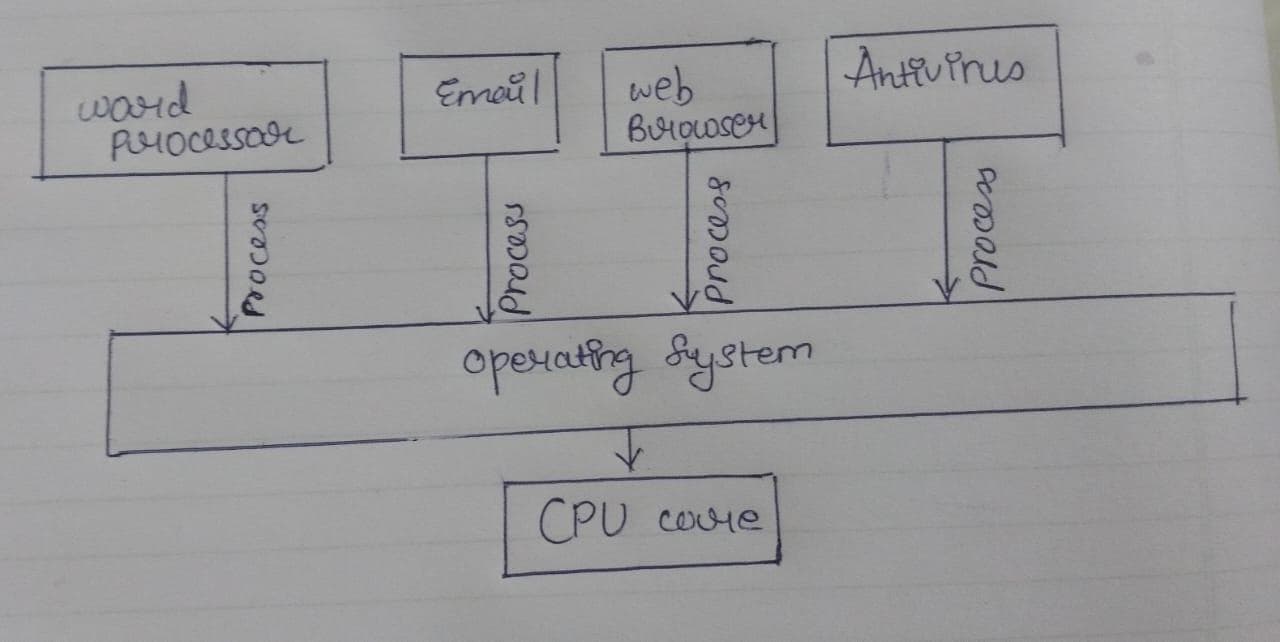 word
Processor
Email
web
Browser
Antivirus
Process
Process
Process
Process
operating system
CPU core